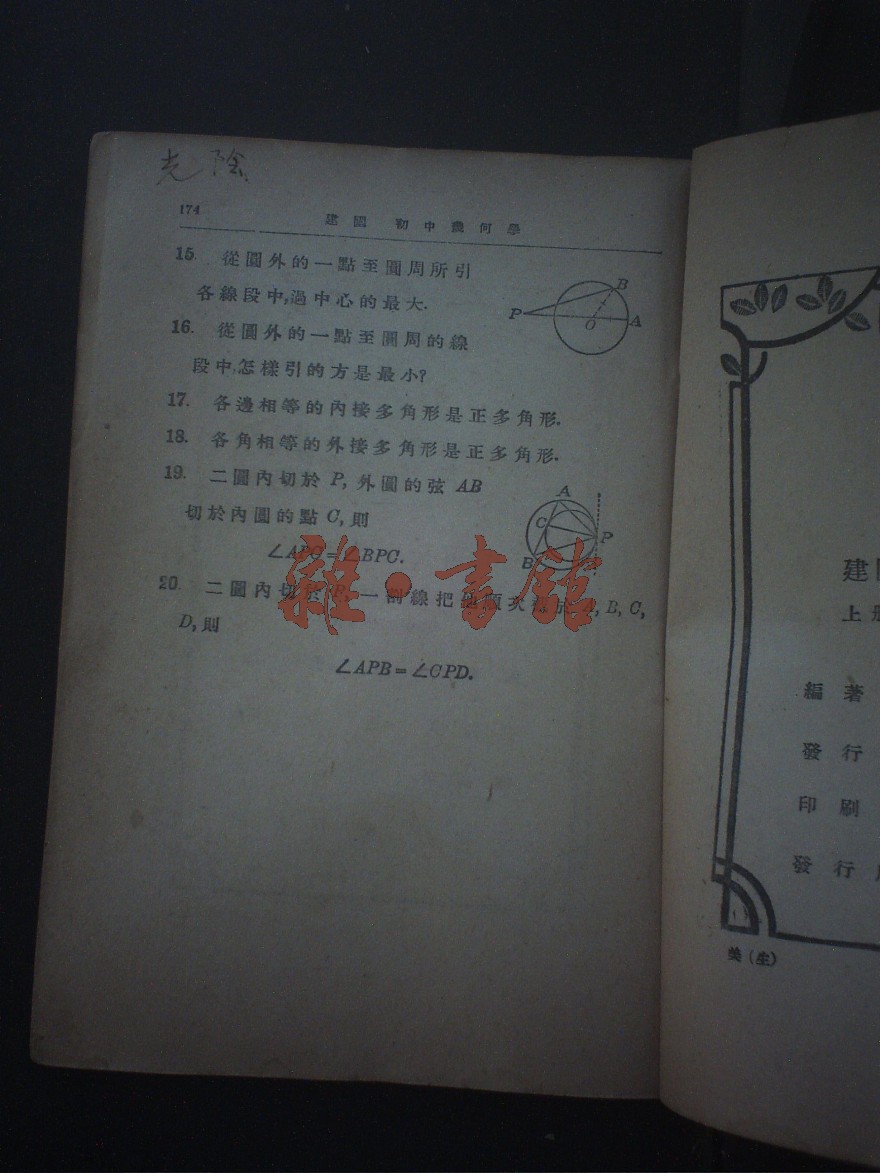 光陰
174
建國 初中幾何學
15. 從圓外的一點至圓周所引
各線段中,過中心的最大.
P
B
O
A
16. 從圓外的一點至圓周的線
段中,怎樣引的方是最小?
17. 各邊相等的內接多角形是正多角形.
18. 各角相等的外接多角形是正多角形.
19. 二圓內切於 P, 外圓的弦 AB
切於內圓的點 C, 則
∠APC=∠BPC.
A
C
P
B
20. 二圓內切於 P, 一割線把 順次 於 A, B, C,
D, 則
∠APB=∠CPD.
雜·書館
建
上册
編著
發行
印刷
發行
美(生)